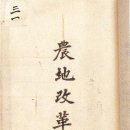 三一
農地改革